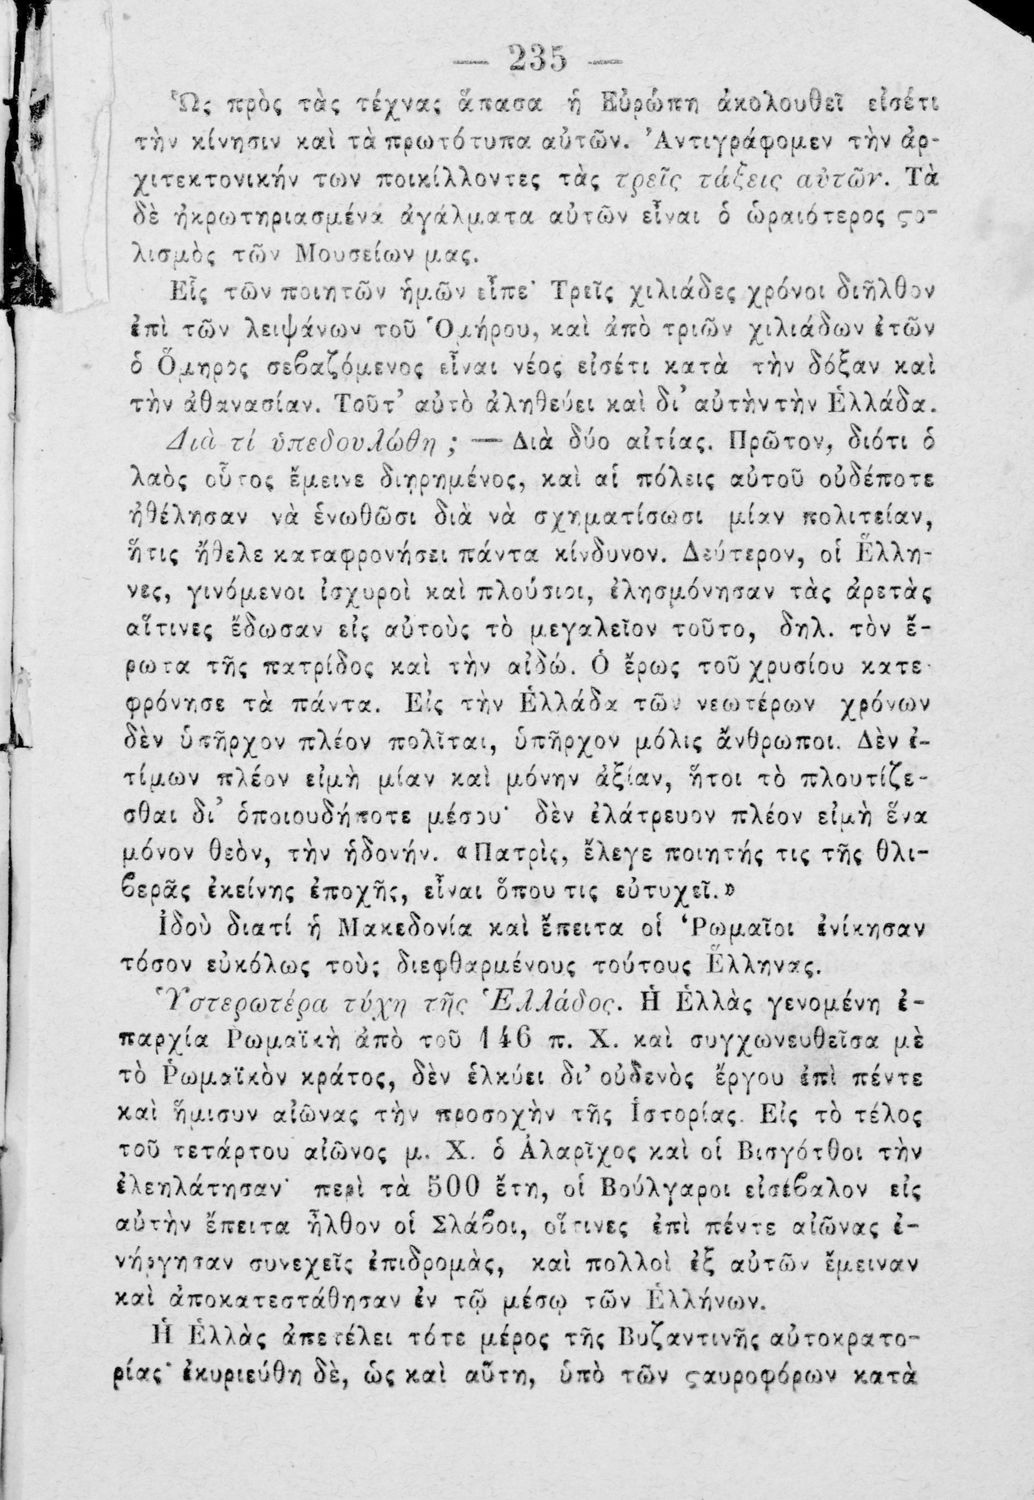 — 235 —
Ὡς πρὸς τὰς τέχνας ἅπασα ἡ Εὐρώπη ἀκολουθεῖ εἰσέτι
τὴν κίνησιν καὶ τὰ πρωτότυπα αὐτῶν. Ἀντιγράφομεν τὴν ἀρ-
χιτεκτονικήν των ποικίλλοντες τὰς τρεῖς τάξεις αὐτῶν. Τὰ
δὲ ἠκρωτηριασμένα ἀγάλματα αὐτῶν εἶναι ὁ ὡραιότερος ϛο-
λισμὸς τῶν Μουσείων μας.
Εἷς τῶν ποιητῶν ἡμῶν εἶπε· Τρεῖς χιλιάδες χρόνοι διῆλθον
ἐπὶ τῶν λειψάνων τοῦ Ὁμήρου, καὶ ἀπὸ τριῶν χιλιάδων ἐτῶν
ὁ Ὅμηρος σεϐαζόμενος εἶναι νέος εἰσέτι κατὰ τὴν δόξαν καὶ
τὴν ἀθανασίαν. Τοῦτ’ αὐτὸ ἀληθεύει καὶ δι’ αὐτὴν τὴν Ἑλλάδα.
Διὰ τί ὑπεδουλώθη ; — Διὰ δύο αἰτίας. Πρῶτον, διότι ὁ
λαὸς οὗτος ἔμεινε διῃρημένος, καὶ αἱ πόλεις αὐτοῦ οὐδέποτε
ἠθέλησαν νὰ ἑνωθῶσι διὰ νὰ σχηματίσωσι μίαν πολιτείαν,
ἥτις ἤθελε καταφρονήσει πάντα κίνδυνον. Δεύτερον, οἱ Ἕλλη-
νες, γινόμενοι ἰσχυροὶ καὶ πλούσιοι, ἐλησμόνησαν τὰς ἀρετὰς
αἵτινες ἔδωσαν εἰς αὐτοὺς τὸ μεγαλεῖον τοῦτο, δηλ. τὸν ἔ-
ρωτα τῆς πατρίδος καὶ τὴν αἰδώ. Ὁ ἔρως τοῦ χρυσίου κατε-
φρόνησε τὰ πάντα. Εἰς τὴν Ἑλλάδα τῶν νεωτέρων χρόνων
δὲν ὑπῆρχον πλέον πολῖται, ὑπῆρχον μόλις ἄνθρωποι. Δὲν ἐ-
τίμων πλέον εἰμὴ μίαν καὶ μόνην ἀξίαν, ἤτοι τὸ πλουτίζε-
σθαι δι’ ὁποιουδήποτε μέσου· δὲν ἐλάτρευον πλέον εἰμὴ ἕνα
μόνον θεὸν, τὴν ἡδονήν. «Πατρὶς, ἔλεγε ποιητής τις τῆς θλι-
ϐερᾶς ἐκείνης ἐποχῆς, εἶναι ὅπου τις εὐτυχεῖ.»
Ἰδοὺ διατί ἡ Μακεδονία καὶ ἔπειτα οἱ Ῥωμαῖοι ἐνίκησαν
τόσον εὐκόλως τοὺς διεφθαρμένους τούτους Ἕλληνας.
Ὑστερωτέρα τύχη τῆς Ἑλλάδος. Ἡ Ἑλλὰς γενομένη ἐ-
παρχία Ῥωμαϊκὴ ἀπὸ τοῦ 146 π. Χ. καὶ συγχωνευθεῖσα μὲ
τὸ Ῥωμαϊκὸν κράτος, δὲν ἑλκύει δι’ οὐδενὸς ἔργου ἐπὶ πέντε
καὶ ἥμισυν αἰῶνας τὴν προσοχὴν τῆς Ἱστορίας. Εἰς τὸ τέλος
τοῦ τετάρτου αἰῶνος μ. Χ. ὁ Ἀλαρῖχος καὶ οἱ Βισγότθοι τὴν
ἐλεηλάτησαν· περὶ τὰ 500 ἔτη, οἱ Βούλγαροι εἰσέϐαλον εἰς
αὐτὴν ἔπειτα ἦλθον οἱ Σλάϐοι, οἵτινες ἐπὶ πέντε αἰῶνας ἐ-
νήργησαν συνεχεῖς ἐπιδρομὰς, καὶ πολλοὶ ἐξ αὐτῶν ἔμειναν
καὶ ἀποκατεστάθησαν ἐν τῷ μέσῳ τῶν Ἑλλήνων.
Ἡ Ἑλλὰς ἀπετέλει τότε μέρος τῆς Βυζαντινῆς αὐτοκρατο-
ρίας· ἐκυριεύθη δὲ, ὡς καὶ αὕτη, ὑπὸ τῶν ϛαυροφόρων κατὰ